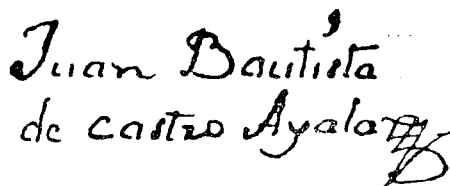 Juan Bautista
de Castro Ayala